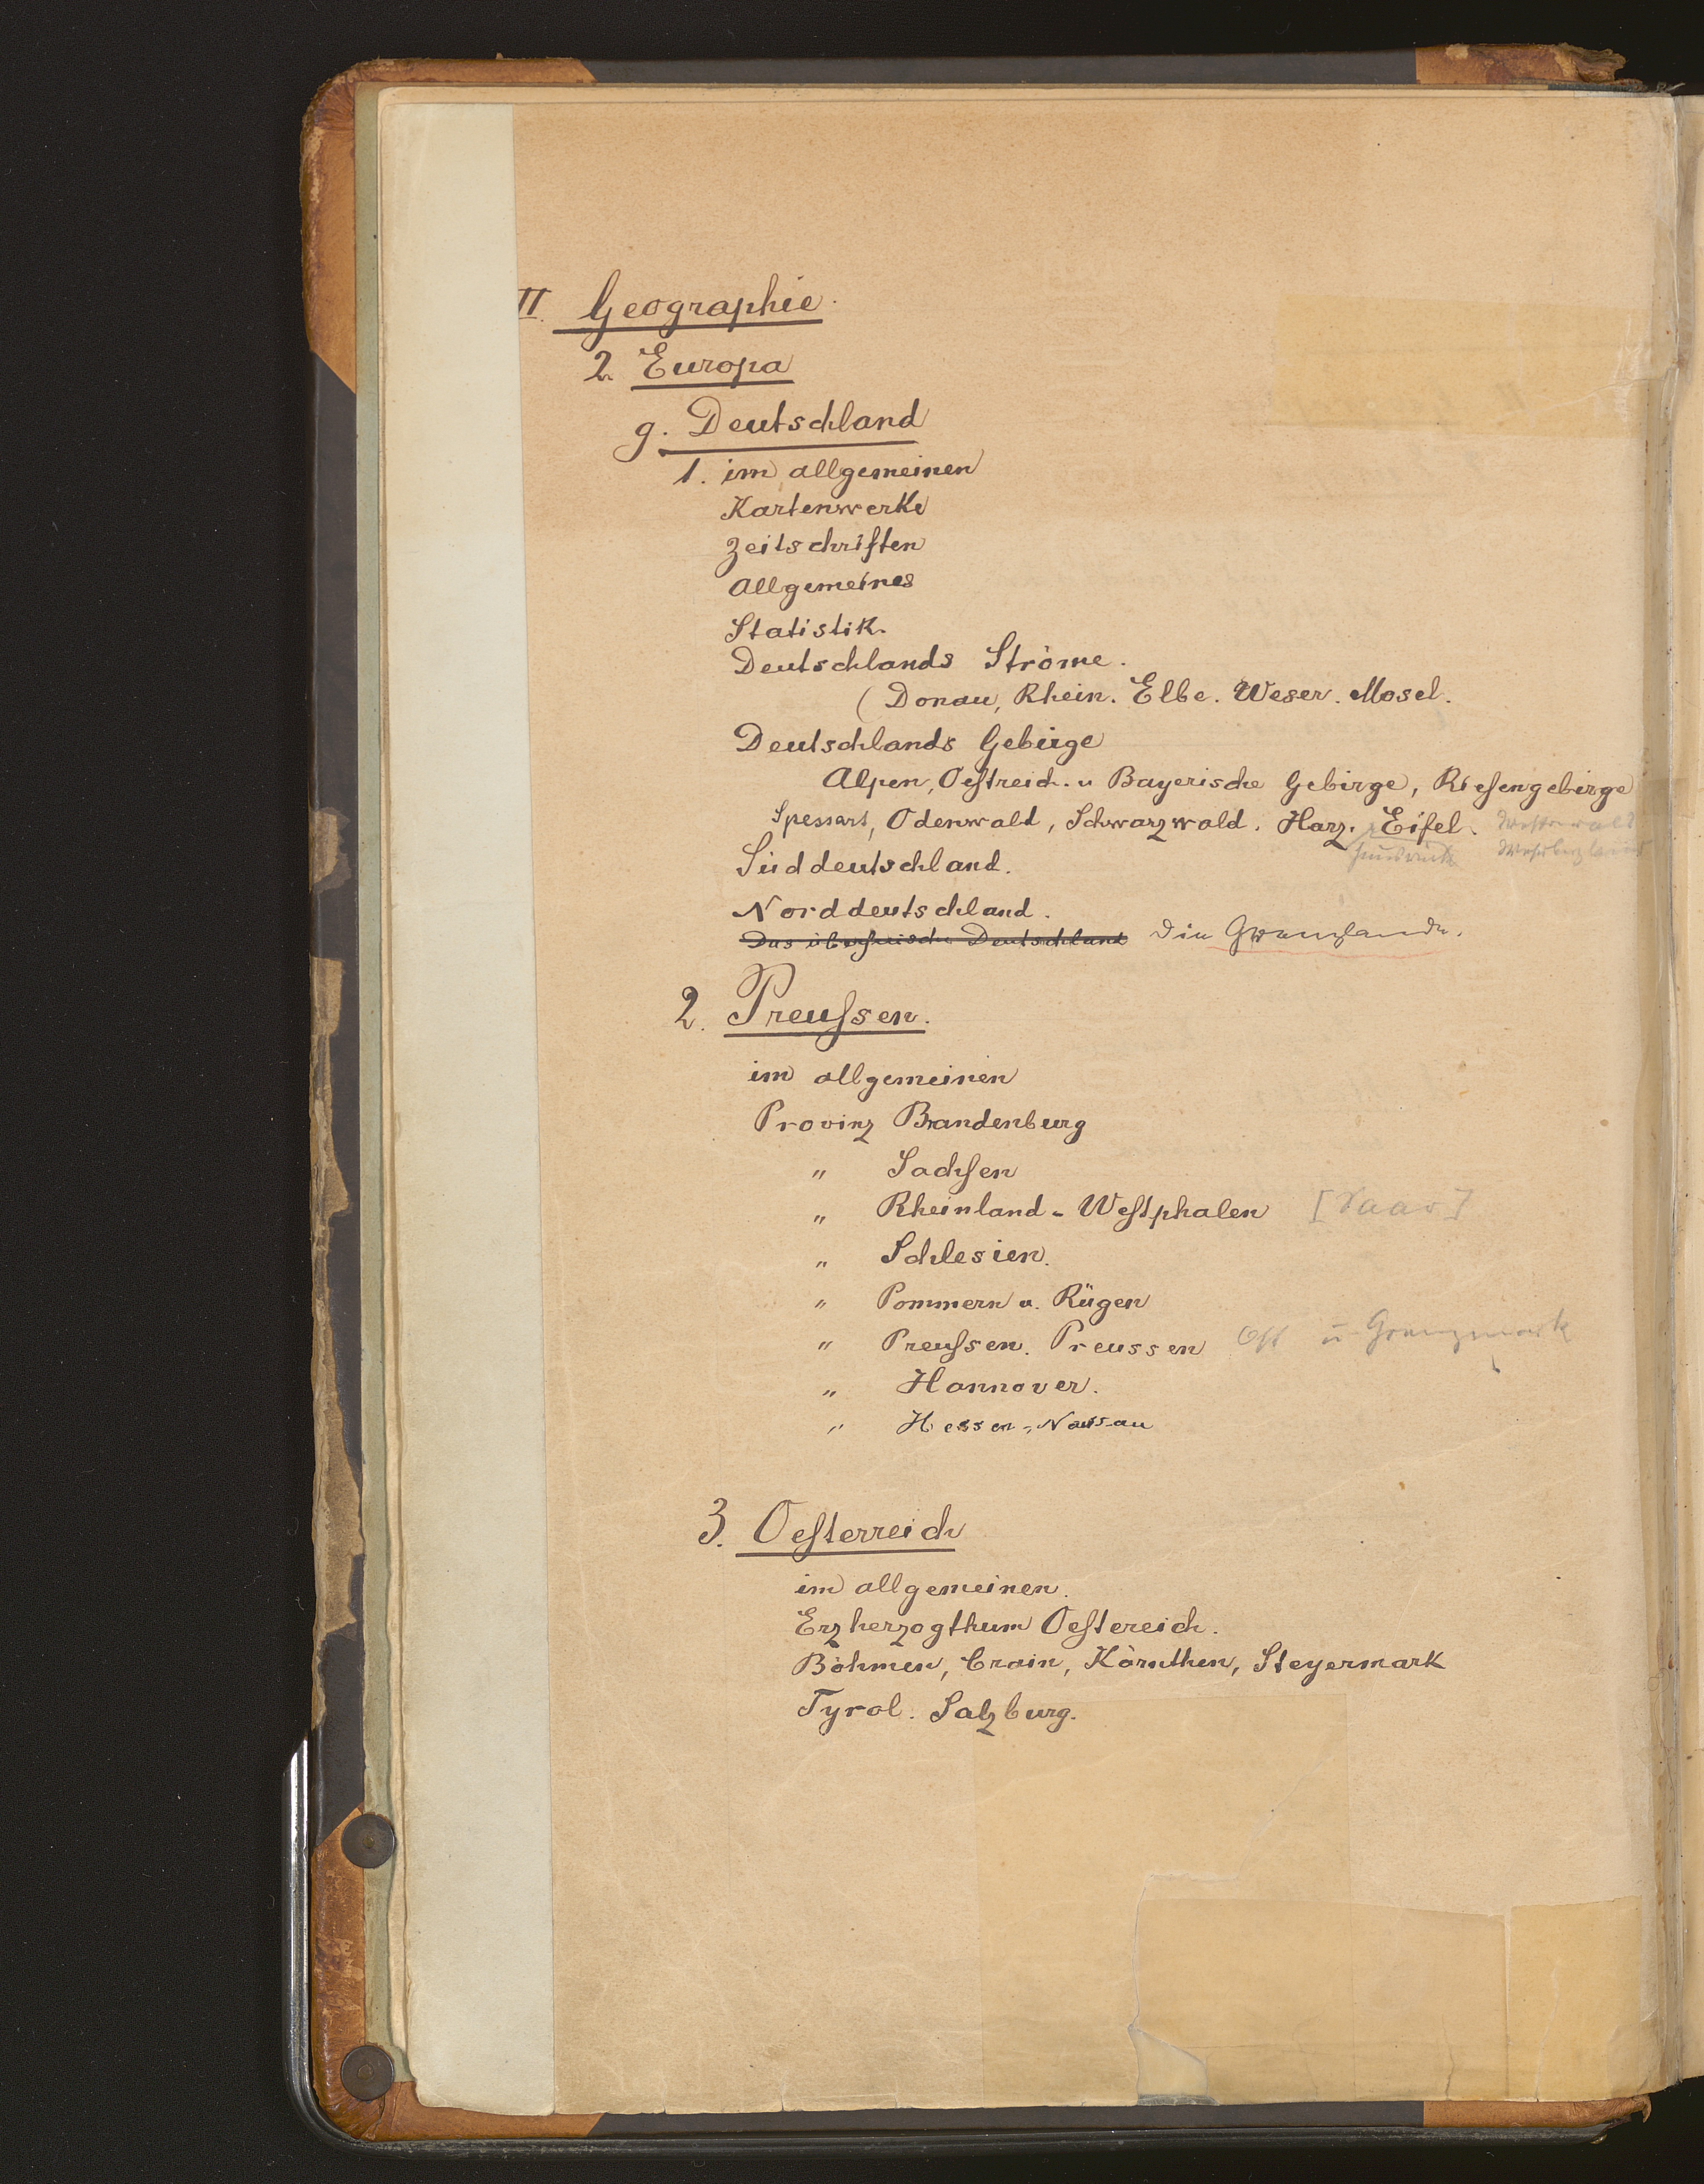 II. Geographie.
2. Europa
g. Deutschland
1. im allgemeinen
Kartenwerke
Zeitschriften
Allgemeines
Statistik.
Deutschlands Ströme.
(Donau, Rhein. Elbe. Weser. Mosel.
Deutschlands Gebirge
Alpen, Oestreich. u Bayerische Gebirge, Riesengebirge
Spessart, Odenwald, Schwarzwald. Harz. Eifel. Westerwald
Hunsrück Weserbergland
Süddeutschland.
Norddeutschland.
Das überseeische Deutschland Die Grenzlande.
2. Preussen.
im allgemeinen
Provinz Brandenburg
" Sachsen
" Rheinland-Westphalen [Saar]
" Schlesien.
" Pommern u. Rügen
" Preussen. Preussen Ost u Grenzmark
" Hannover.
" Hessen-Nassau
3. Oesterreich
im allgemeinen.
Erzherzogthum Oestereich.
Böhmen, Crain, Kärnthen, Steyermark
Tyrol. Salzburg.